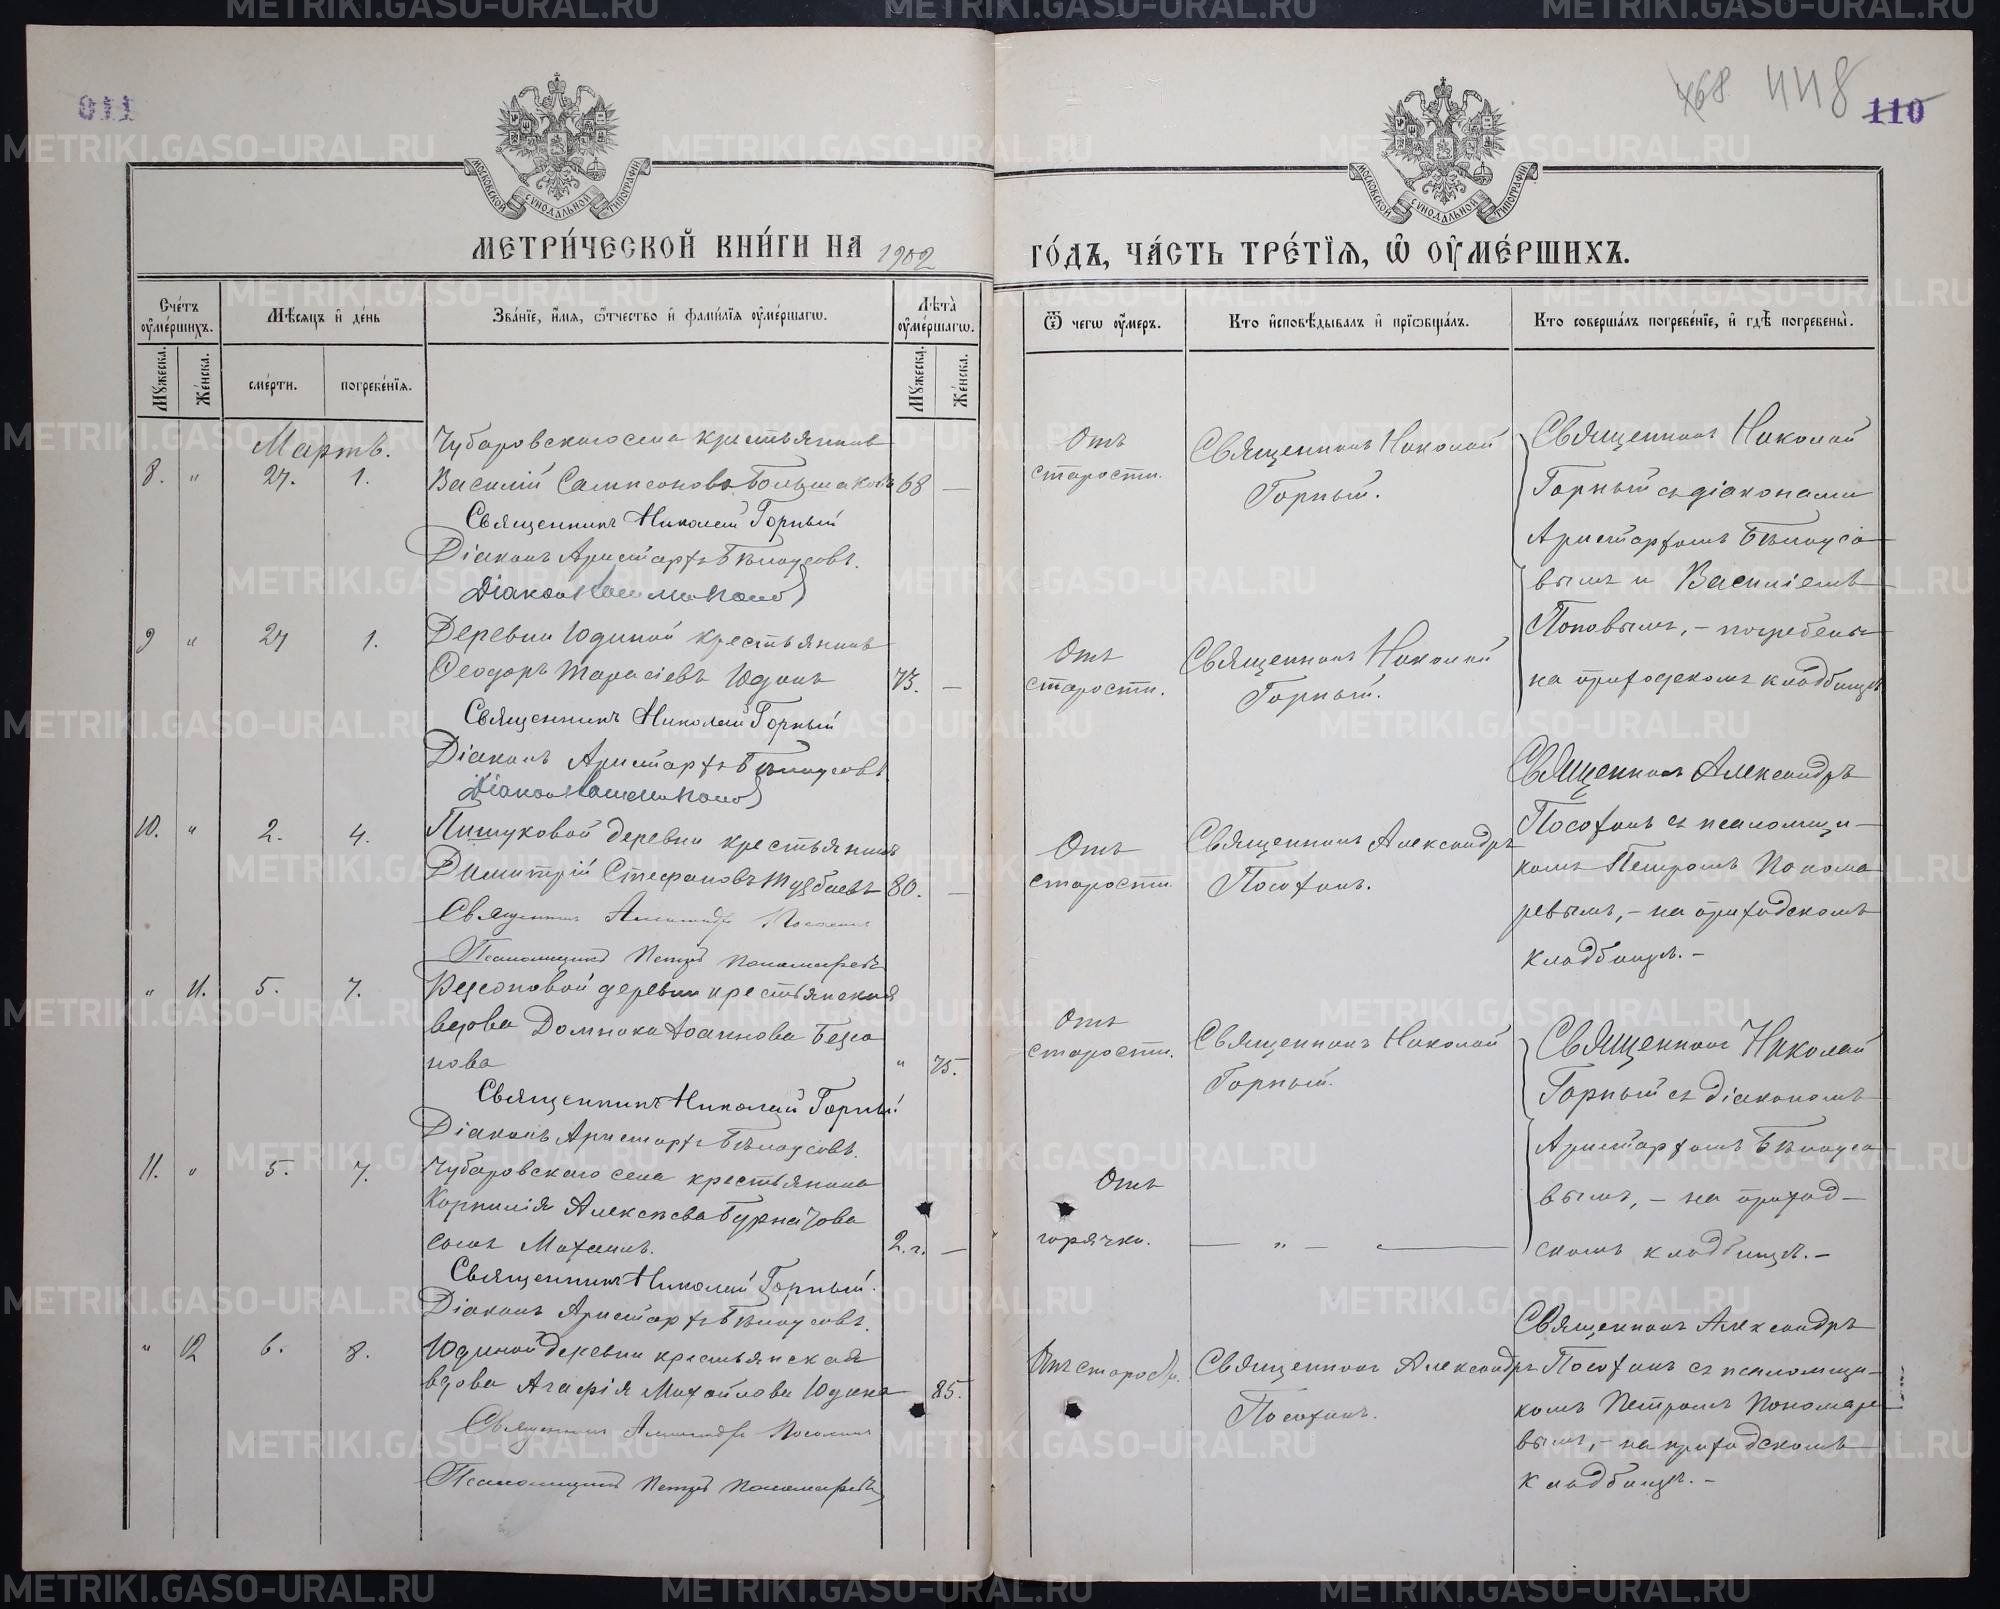 011
468 448 110
МЕТРИ́ЧЕСКОЙ КНИ́ГИ НА 1902
ГО́ДЪ, ЧА́СТЬ ТРЕ́ТІѦ, Ѡ ОУ҆МЕ́РШИХЪ.
МОСКОВСКОЙ СѴНОДАЛЬНОЙ ТИПОГРАФІИ
МОСКОВСКОЙ СѴНОДАЛЬНОЙ ТИПОГРАФІИ
Сче́тъ оу҆ме́ршихъ.
Мꙋ́жеска.
Же́нска.
Мѣ́сяцъ и҆ де́нь
сме́рти.
погребе́нїѧ.
Зва́нїе, и҆́мѧ, ѻ҆́тчество и҆ фамі́лїѧ оу҆ме́ршагѡ.
Лѣта̀ оу҆ме́ршагѡ.
Мꙋ́жеска.
Же́нска.
Ѿ чегѡ̀ оу҆́меръ.
Кто̀ и҆сповѣ́дывалъ и҆ прїѡбща́лъ.
Кто̀ соверша́лъ погребе́нїе, и҆ гдѣ̀ погребены̀.
Мартъ.
8. " 27. 1.
Чубаровскаго села крестьянинъ
Василій Сампсоновъ Большаковъ 68 —
Священникъ Николай Горный
Діаконъ Аристархъ Бѣлоусовъ.
Діаконъ
Отъ
старости.
Священникъ Николай
Горный.
Священникъ Николай
Горный съ діаконами
Аристархомъ Бѣлоусо
вымъ и Василіемъ
Поповымъ, – погребены
на приходскомъ кладбищѣ
9 " 27 1.
Деревни Юдиной крестьянинъ
Ѳеодоръ Тарасіевъ Юдинъ 73. —
Священникъ Николай Горный
Діаконъ Аристархъ Бѣлоусовъ
Діаконъ
Отъ
старости.
Священникъ Николай
Горный.
10. " 2. 4.
Пишуковой деревни крестьянинъ
Димитрій Стефановъ 80. —
Священникъ Александръ Посохинъ
Псаломщикъ Петръ Пономаревъ
Отъ
старости
Священникъ Александръ
Посохинъ.
Священникъ Александръ
Посохинъ съ псаломщи–
комъ Петромъ Понома
ревымъ, – на приходскомъ
кладбищѣ. –
" 11. 5. 7.
деревни крестьянская
вдова Домника Іоаннова Безсо
нова " 75.
Священникъ Николай Горный
Діаконъ Аристархъ Бѣлоусовъ.
Отъ
старости.
Священникъ Николай
Горный.
Священникъ Николай
Горный съ діакономъ
Аристархомъ Бѣлоусо
вымъ, – на приход–
скомъ кладбищѣ. –
11. " 5. 7.
Чубаровскаго села крестьянина
Корнилія Алексѣева
сынъ Михаилъ. 2. г. —
Священникъ Николай Горный.
Діаконъ Аристархъ Бѣлоусовъ.
Отъ
горячки.
— " — —
" 12 6. 8.
Юдиной деревни крестьянская
вдова Агафія Михайлова Юдина 85.
Священникъ Александръ Посохинъ
Псаломщикъ Петръ Пономаревъ
Отъ старости.
Священникъ Александръ
Посохинъ.
Священникъ Александръ
Посохинъ съ псаломщи–
комъ Петромъ Пономаре
вымъ, – на приходскомъ
кладбищѣ. –
METRIKI.GASO-URAL.RU